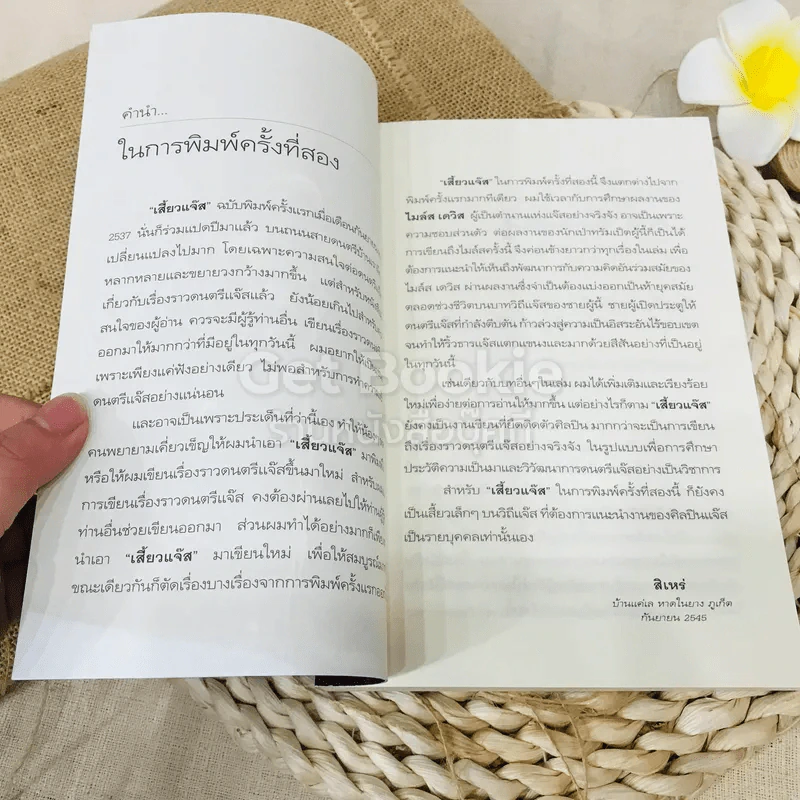 คำนำ...
ในการพิมพ์ครั้งที่สอง
"เสี้ยวแจ๊ส" ฉบับพิมพ์ครั้งแรกเมื่อเดือนกันยายน
2537 นั่นก็ร่วมแปดปีมาแล้ว บนถนนสายดนตรีบ้านเรา
เปลี่ยนแปลงไปมาก โดยเฉพาะความสนใจต่อดนตรี
หลากหลายและขยายวงกว้างมากขึ้น แต่สำหรับ
เกี่ยวกับเรื่องราวดนตรีแจ๊สแล้ว ยังน้อยเกินไปสำหรับ
สนใจของผู้อ่าน ควรจะมีผู้รู้ท่านอื่น เขียนเรื่องราว
ออกมาให้มากกว่าที่มีอยู่ในทุกวันนี้ ผมอยากให้
เพราะเพียงแค่ฟังอย่างเดียว ไม่พอสำหรับการทำความ
ดนตรีแจ๊สอย่างแน่นอน
และอาจเป็นเพราะประเด็นที่ว่านี้เอง ทำให้น้อง
คนพยายามเคี่ยวเข็ญให้ผมนำเอา "เสี้ยวแจ๊ส" มา
หรือให้ผมเขียนเรื่องราวดนตรีแจ๊สขึ้นมาใหม่ สำหรับ
การเขียนเรื่องราวดนตรีแจ๊ส คงต้องผ่านเลยไปให้ท่าน
ท่านอื่นช่วยเขียนออกมา ส่วนผมทำได้อย่างมากก็เพียง
นำเอา "เสี้ยวแจ๊ส" มาเขียนใหม่ เพื่อให้สมบูรณ์
ขณะเดียวกันก็ตัดเรื่องบางเรื่องจากการพิมพ์ครั้งแรกออก
"เสี้ยวแจ๊ส" ในการพิมพ์ครั้งที่สองนี้ จึงแตกต่างไปจาก
พิมพ์ครั้งแรกมากทีเดียว ผมใช้เวลากับการศึกษาผลงานของ
ไมล์ส เดวิส ผู้เป็นตำนานแห่งแจ๊สอย่างจริงจัง อาจเป็นเพราะ
ความชอบส่วนตัว ต่อผลงานของนักเป่าทรัมเป็ตผู้นี้ก็เป็นได้
การเขียนถึงไมล์สครั้งนี้ จึงค่อนข้างยาวกว่าทุกเรื่องในเล่ม เพื่อ
ต้องการแนะนำให้เห็นถึงพัฒนาการกับความคิดอันร่วมสมัยของ
ไมล์ส เดวิส ผ่านผลงานซึ่งจำเป็นต้องแบ่งออกเป็นห้ายุคสมัย
ตลอดช่วงชีวิตบนบาทวิถีแจ๊สของชายผู้นี้ ชายผู้เปิดประตูให้
ดนตรีแจ๊สที่กำลังตีบตัน ก้าวล่วงสู่ความเป็นอิสระอันไร้ขอบเขต
จนทำให้ริ้วธารแจ๊สแตกแขนงและมากด้วยสีสันอย่างที่เป็นอยู่
ในทุกวันนี้
เช่นเดียวกับบทอื่นๆ ในเล่ม ผมได้เพิ่มเติมและเรียงร้อย
ใหม่เพื่อง่ายต่อการอ่านให้มากขึ้น แต่อย่างไรก็ตาม "เสี้ยวแจ๊ส"
ยังคงเป็นงานเขียนที่ยึดติดตัวศิลปิน มากกว่าจะเป็นการเขียน
ถึงเรื่องราวดนตรีแจ๊สอย่างจริงจัง ในรูปแบบเพื่อการศึกษา
ประวัติความเป็นมาและวิวัฒนาการดนตรีแจ๊สอย่างเป็นวิชาการ
สำหรับ "เสี้ยวแจ๊ส" ในการพิมพ์ครั้งที่สองนี้ ก็ยังคง
เป็นเสี้ยวเล็กๆ บนวิถีแจ๊ส ที่ต้องการแนะนำงานของศิลปินแจ๊ส
เป็นรายบุคคลเท่านั้นเอง
สิเหร่
บ้านแค่เล หาดในยาง ภูเก็ต
กันยายน 2545
Get Bookie
ร้านหนังสือบุ๊คกี้